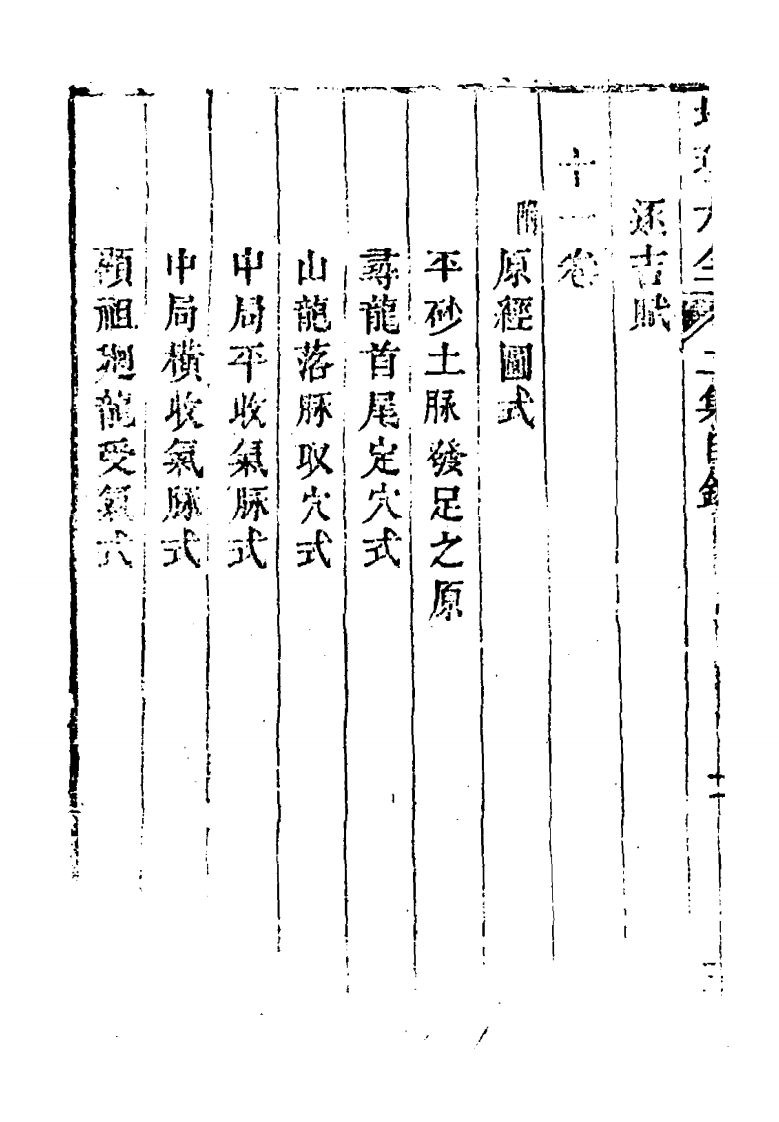 地理大全 二集目錄 十一
逐吉賦
十一卷
附原經圖式
平砂土脈發足之原
尋龍首尾定穴式
山龍落脈取穴式
中局平收氣脈式
中局橫收氣脈式
顧祖廻龍受氣式